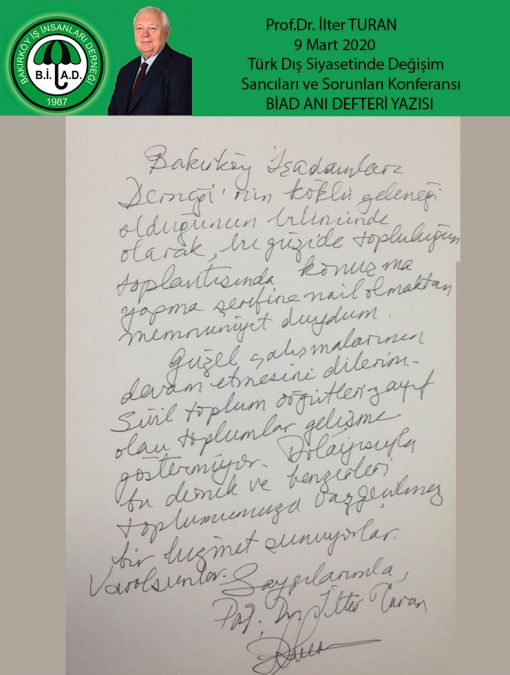 BAKIRKÖY İŞ İNSANLARI DERNEĞİ
B.İ.A.D.
1987
Prof.Dr. İlter TURAN
9 Mart 2020
Türk Dış Siyasetinde Değişim
Sancıları ve Sorunları Konferansı
BİAD ANI DEFTERİ YAZISI
Bakırköy İşadamları
Derneği'nin köklü geleneği
olduğunun bilincinde
olarak, bu güzide topluluğun
toplantısında konuşma
yapma şerefine nail olmaktan
memnuniyet duydum.
Güzel çalışmalarının
devam etmesini dilerim.
Sivil toplum örgütleri zayıf
olan toplumlar gelişme
göstermiyor. Dolayısıyla
bu dernek ve benzerleri
toplumumuza vazgeçilmez
bir hizmet sunuyorlar.
Varolsunlar. Saygılarımla,
Prof. Dr. İlter Turan